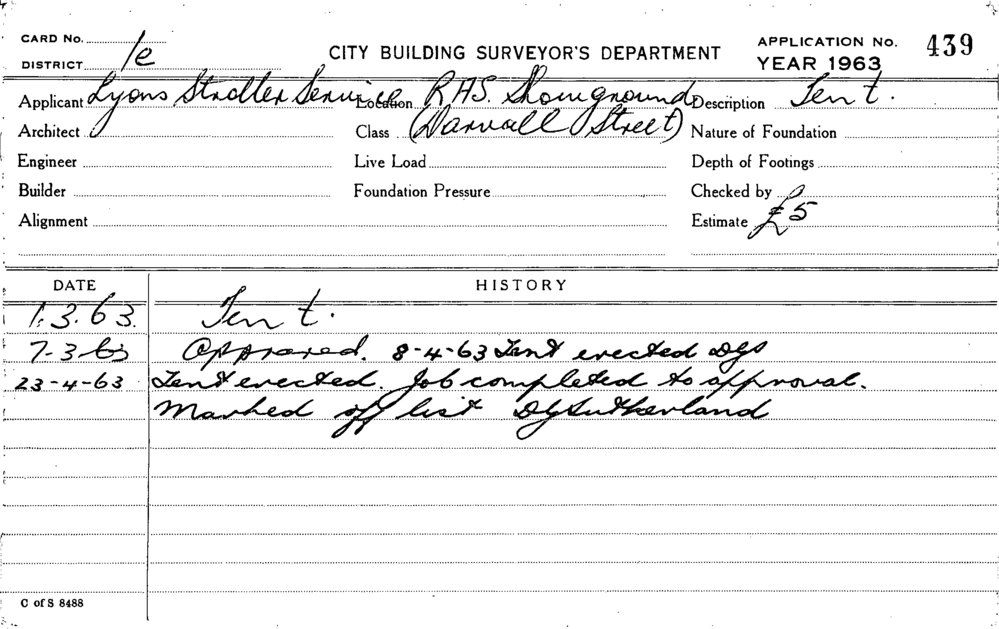 CARD No.
DISTRICT 1e
CITY BUILDING SURVEYOR'S DEPARTMENT
APPLICATION No. 439
YEAR 1963
Applicant Lyons Stroller Service Location R.A.S. Showground Description Tent.
Architect Class (Darvall Street) Nature of Foundation
Engineer Live Load Depth of Footings
Builder Foundation Pressure Checked by
Alignment Estimate £5
DATE HISTORY
1.3.63. Tent.
7-3-63 Approved. 8-4-63 Tent erected DGS
23-4-63 Tent erected. Job completed to approval.
Marked off list DGSutherland
C of S 8488